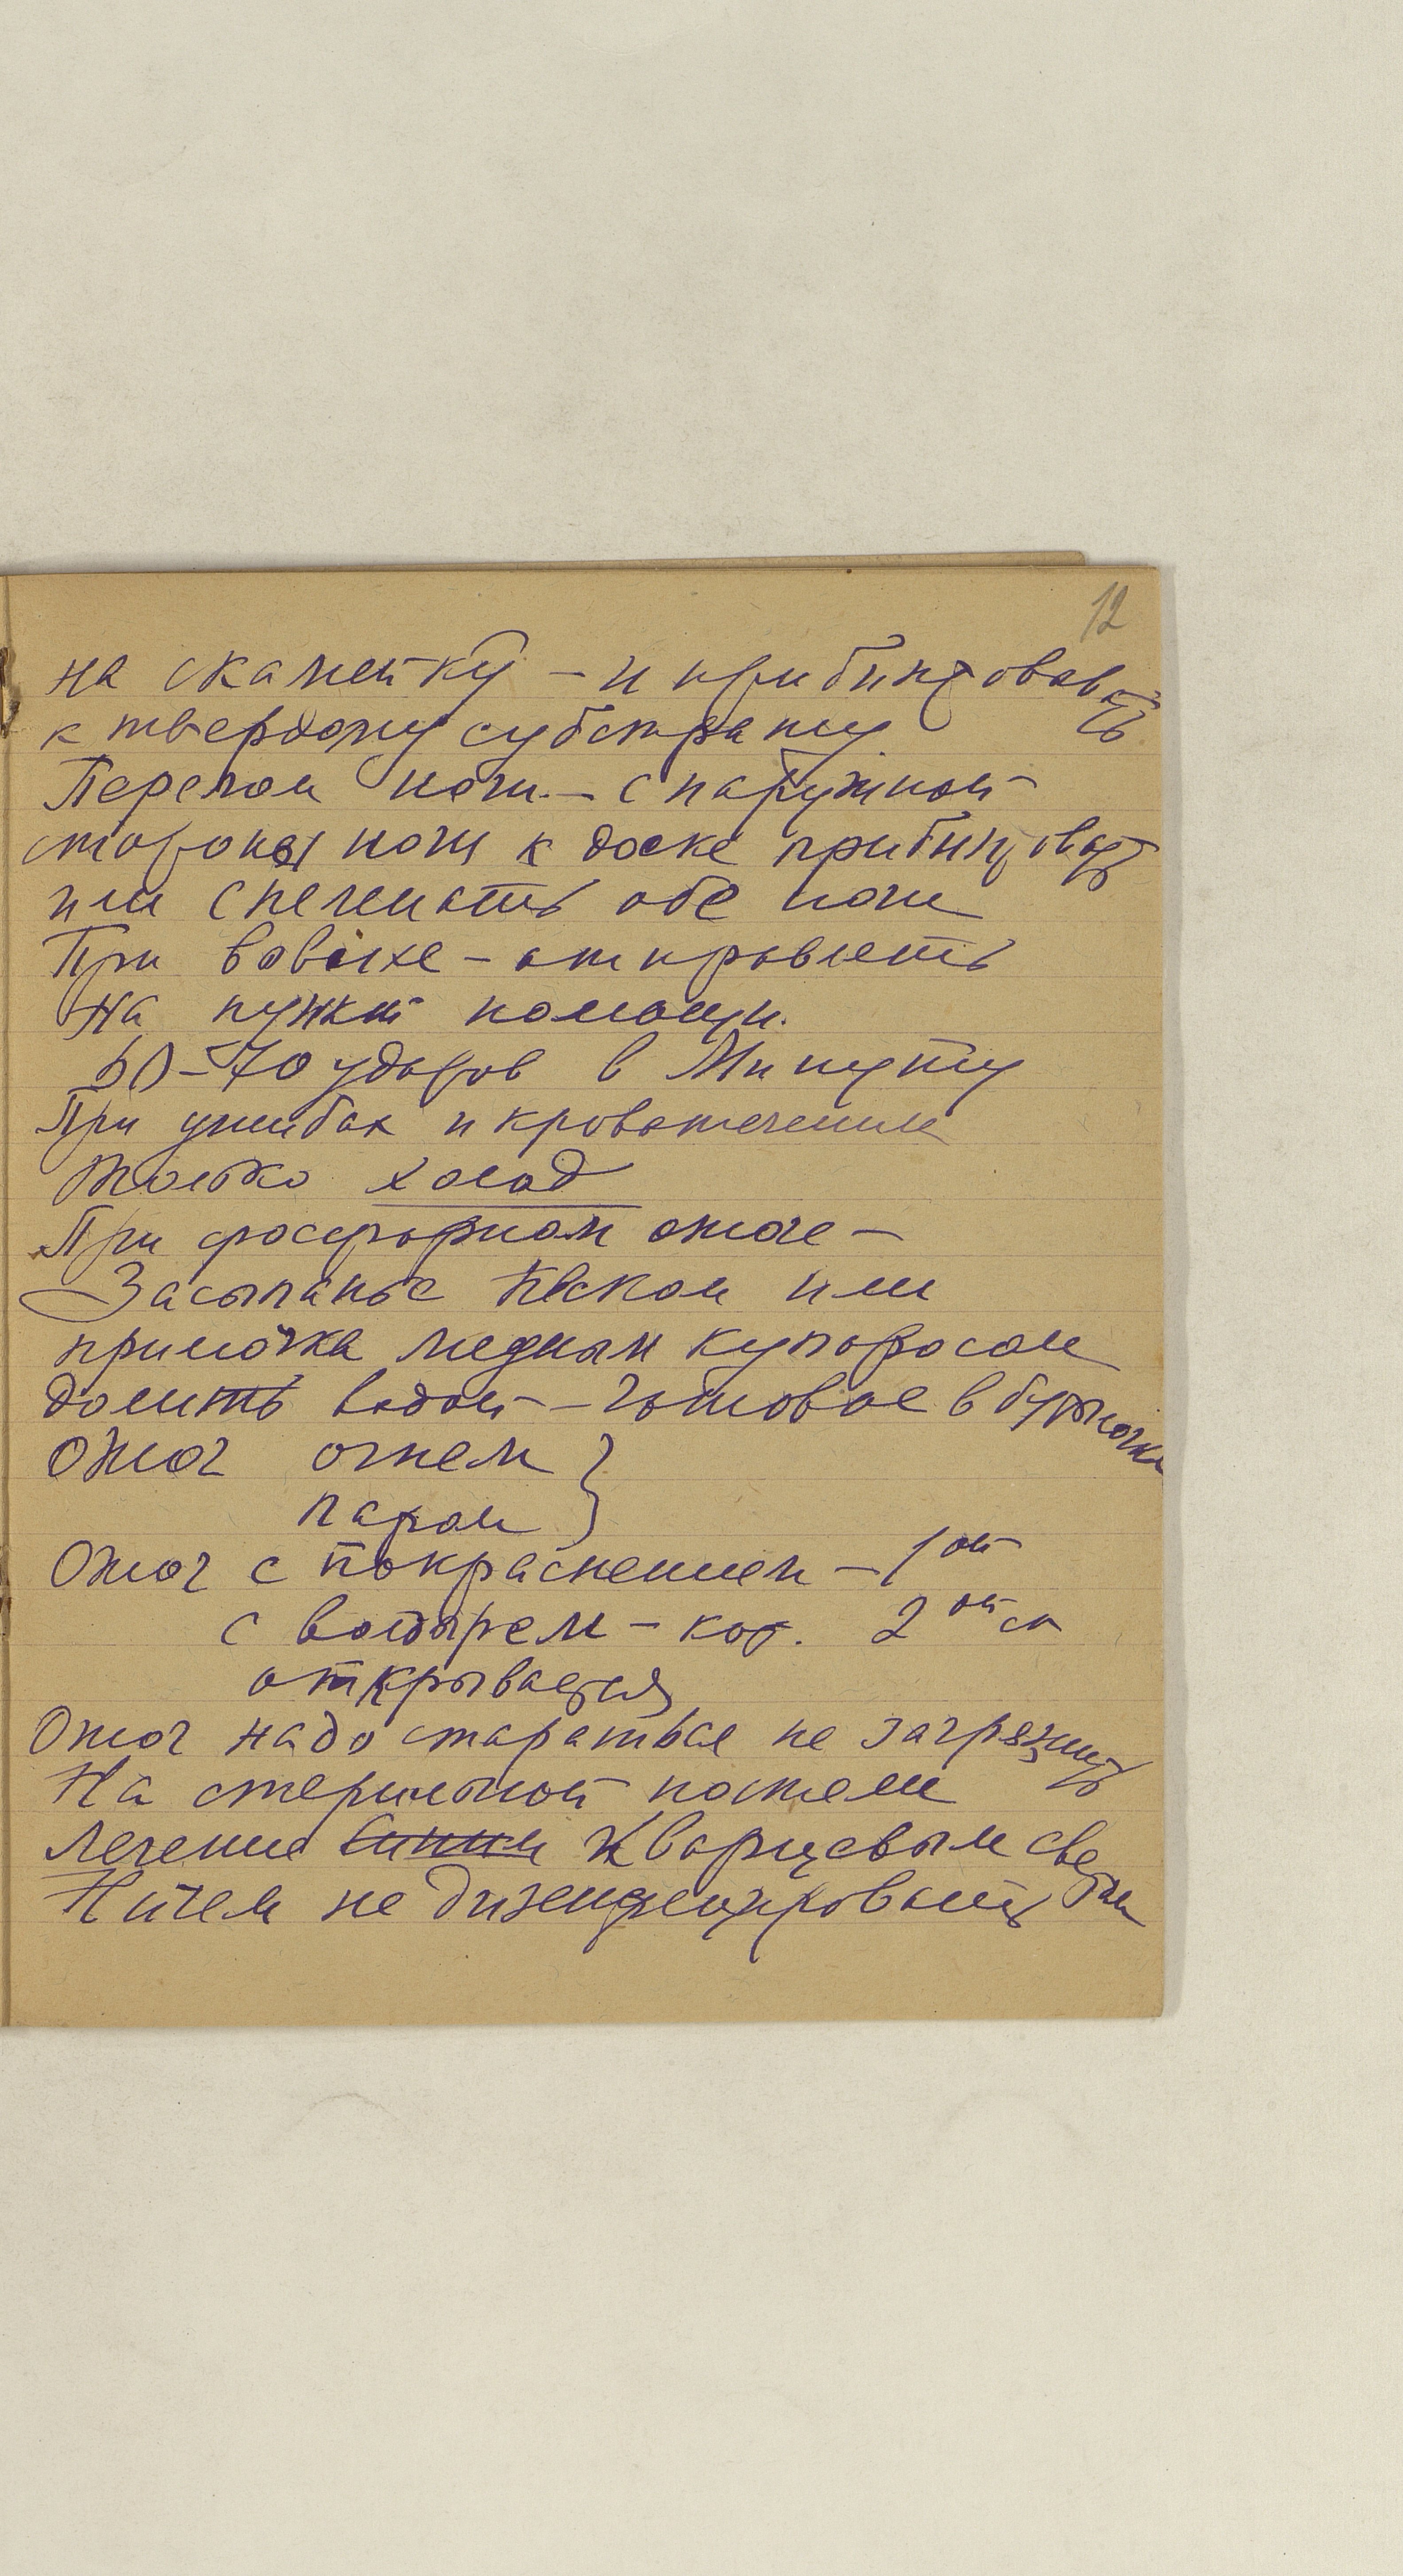 12
на скамейку – и прибинтовать
к твердому субстрату
Перелом ноги – с наружной
стороны ноги к доске прибинтовать
или спеленать обе ноги
При вывихе – отправлять
на пункт помощи.
60–70 ударов в минуту
При ушибах и кровотечениях
только холод
При фосфорном ожоге –
Засыпанье песком или
примочка медным купоросом
долить водой – готовое в бутылочке
Ожог огнем }
паром
Ожог с покраснением – 1ой
с волдырем – кот. 2ой ст
открывается
Ожог надо стараться не загрязнить
На стерильной постели
лечение кварцевым светом
Ничем не дизенфецировать